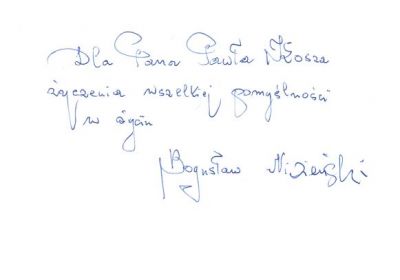 Dla Pana Pawła Kłosza
życzenia wszelkiej pomyślności
w życiu
Bogusław Nizieński